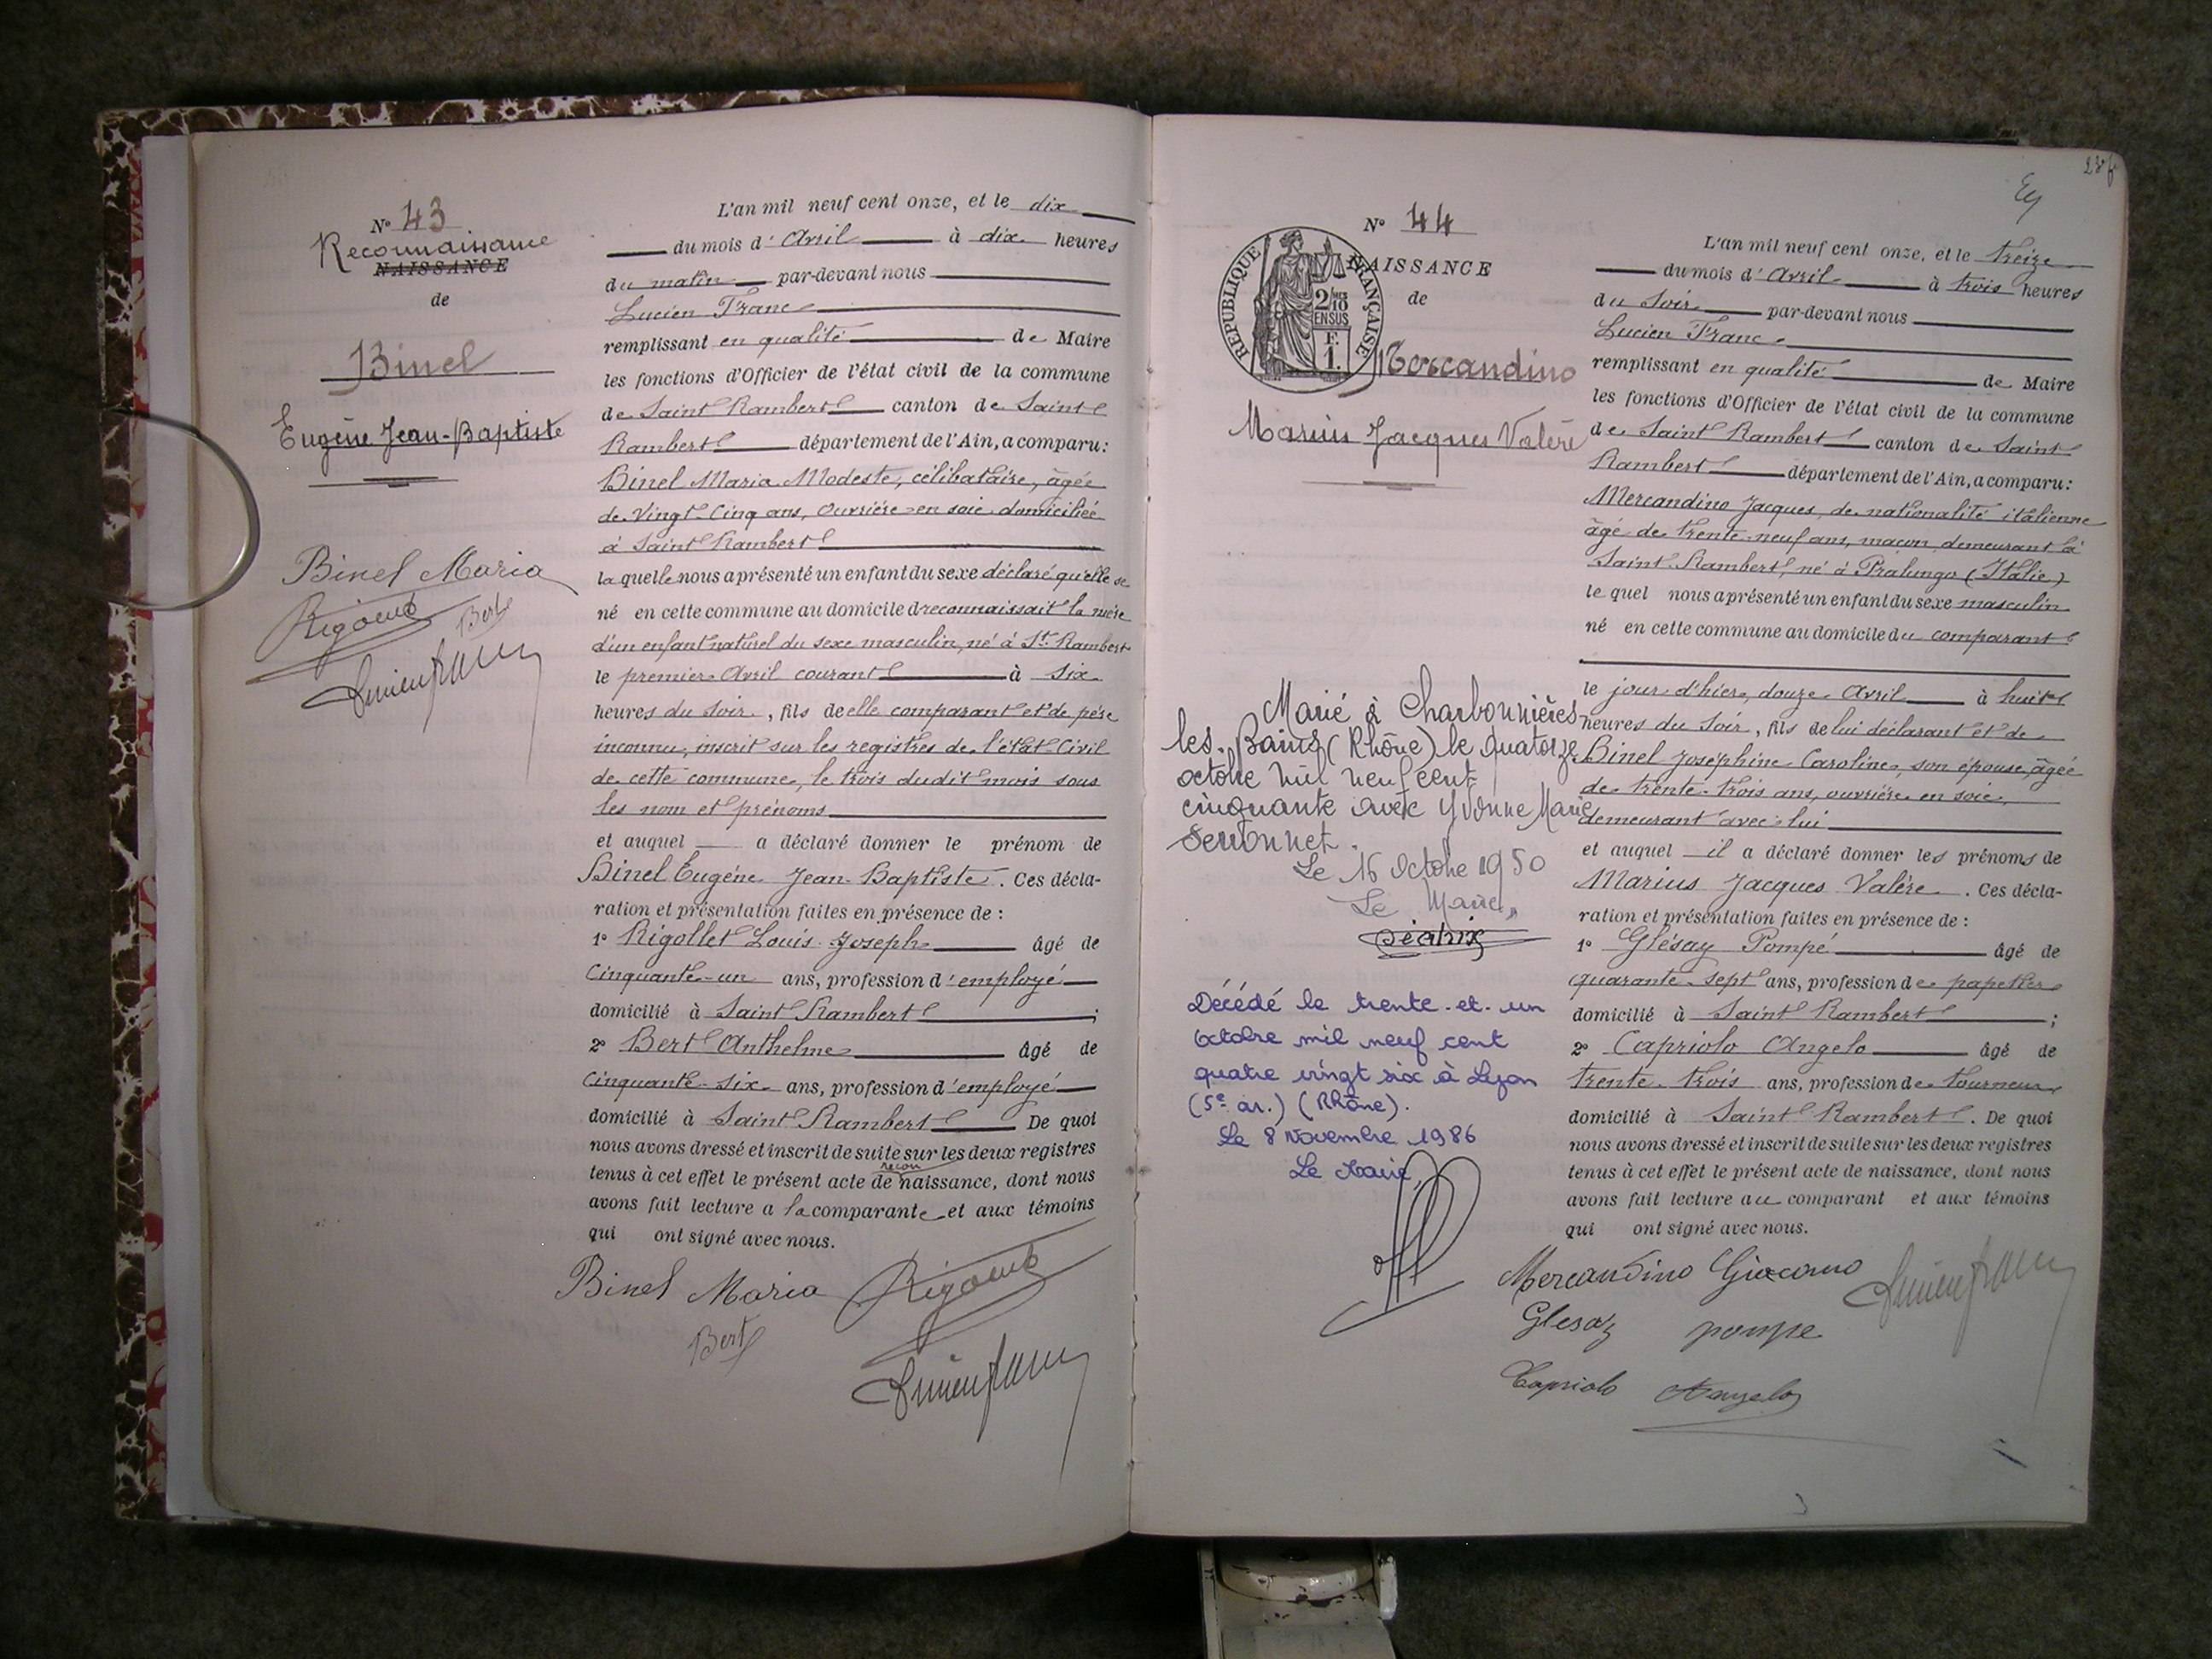 Nº 43
Reconnaissance
NAISSANCE
de
Binel
Eugène Jean-Baptiste
Binel Maria
Bert
L'an mil neuf cent onze, et le dix
du mois d'Avril à dix heures
du matin par-devant nous
Lucien Franc
remplissant en qualité de Maire
les fonctions d'Officier de l'état civil de la commune
de Saint Rambert canton de Saint
Rambert département de l'Ain, a comparu:
Binel Maria Modeste, célibataire, âgée
de Vingt-Cinq ans, Ouvrière en soie domiciliée
à Saint Rambert
la quelle nous a présenté un enfant du sexe déclaré qu'elle se
né en cette commune au domicile d reconnaissait la mère
d'un enfant naturel du sexe masculin, né à St. Rambert
le premier Avril courant à six
heures du soir, fils de elle comparant et de père
inconnu, inscrit sur les registres de l'état Civil
de cette commune, le trois dudit mois sous
les nom et prénoms
et auquel a déclaré donner le prénom de
Binel Eugène Jean-Baptiste. Ces décla-
ration et présentation faites en présence de :
1º Rigollet Louis Joseph âgé de
Cinquante-un ans, profession d'employé
domicilié à Saint Rambert ;
2º Bert Anthelme âgé de
Cinquante-six ans, profession d'employé
domicilié à Saint Rambert De quoi
nous avons dressé et inscrit de suite sur les deux registres
recon
tenus à cet effet le présent acte de naissance, dont nous
avons fait lecture a la comparante et aux témoins
qui ont signé avec nous.
Binel Maria
Bert
Nº 44
NAISSANCE
de
RÉPUBLIQUE FRANÇAISE
2/10
EN SUS
F.
1.
Mercandino
Marius Jacques Valère
Marié à Charbonnières
les-Bains (Rhône) le quatorze
octobre mil neuf cent
cinquante avec Yvonne Marie
Le 16 Octobre 1950
Le Maire,
Décédé le trente-et-un
octobre mil neuf cent
quatre vingt six à Lyon
(5e ar.) (Rhône).
Le 8 Novembre 1986
Le Maire,
L'an mil neuf cent onze, et le treize
du mois d'Avril à trois heures
du soir par-devant nous
Lucien Franc
remplissant en qualité de Maire
les fonctions d'Officier de l'état civil de la commune
de Saint Rambert canton de Saint
Rambert département de l'Ain, a comparu:
Mercandino Jacques, de nationalité italienne
âgé de trente-neuf ans, maçon demeurant à
Saint-Rambert, né à Pralungo (Italie)
le quel nous a présenté un enfant du sexe masculin
né en cette commune au domicile du comparant
le jour d'hier, douze Avril à huit
heures du soir, fils de lui déclarant et de
Binel Joséphine Caroline, son épouse, âgée
de trente-trois ans, ouvrière en soie,
demeurant avec lui
et auquel il a déclaré donner les prénoms de
Marius Jacques Valère. Ces décla-
ration et présentation faites en présence de :
1º Glésay Pompé âgé de
quarante-sept ans, profession de papetier
domicilié à Saint Rambert ;
2º Capriolo Angelo âgé de
trente-trois ans, profession de tourneur
domicilié à Saint Rambert. De quoi
nous avons dressé et inscrit de suite sur les deux registres
tenus à cet effet le présent acte de naissance, dont nous
avons fait lecture au comparant et aux témoins
qui ont signé avec nous.
Mercandino Giacomo
Glesaz pompe
Capriolo Angelo